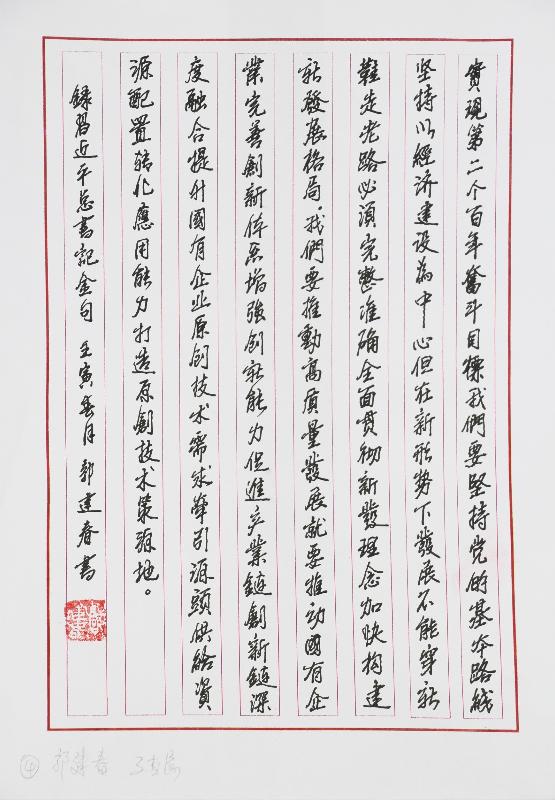 實現第二个百年奮斗目標我們要堅持党的基夲路线
坚持以經济建设為中心但在新形势下發展不能穿新
鞋走老路必須完整准确全面贯彻新發理念加快构建
新發展格局。我們要推動高质量發展就要推动國有企
業完善創新体系增強创新能力促進产業鏈創新鏈深
度融合提升國有企业原创技术需求牵引源頭供給資
源配置转化應用能力打造原創技术策源地。
錄習近平总書記金句 壬寅春月 郭建春書
④ 郭建春